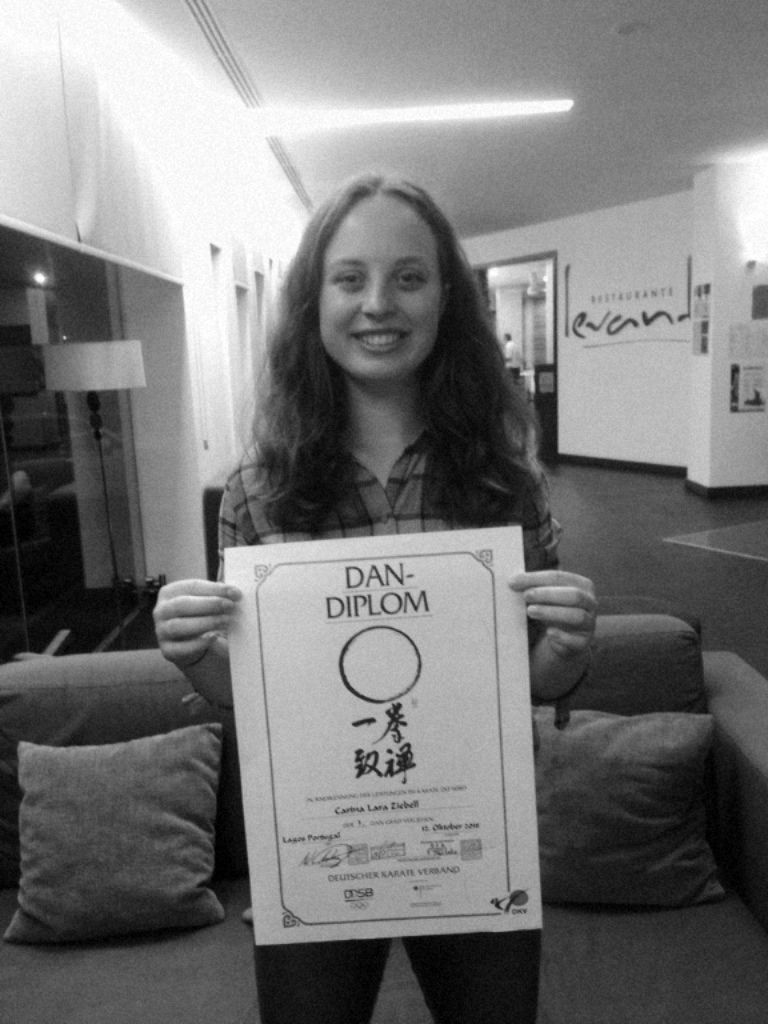 RESTAURANTE
levant
DAN-
DIPLOM
一拳
致禅
IN ANERKENNUNG DER LEISTUNGEN IM KARATE DO WIRD
Carina Lara Ziebell
DER 1. DAN GRAD VERLIEHEN
Lagos Portugal 12. Oktober
DEUTSCHER KARATE VERBAND
DOSB
DKV